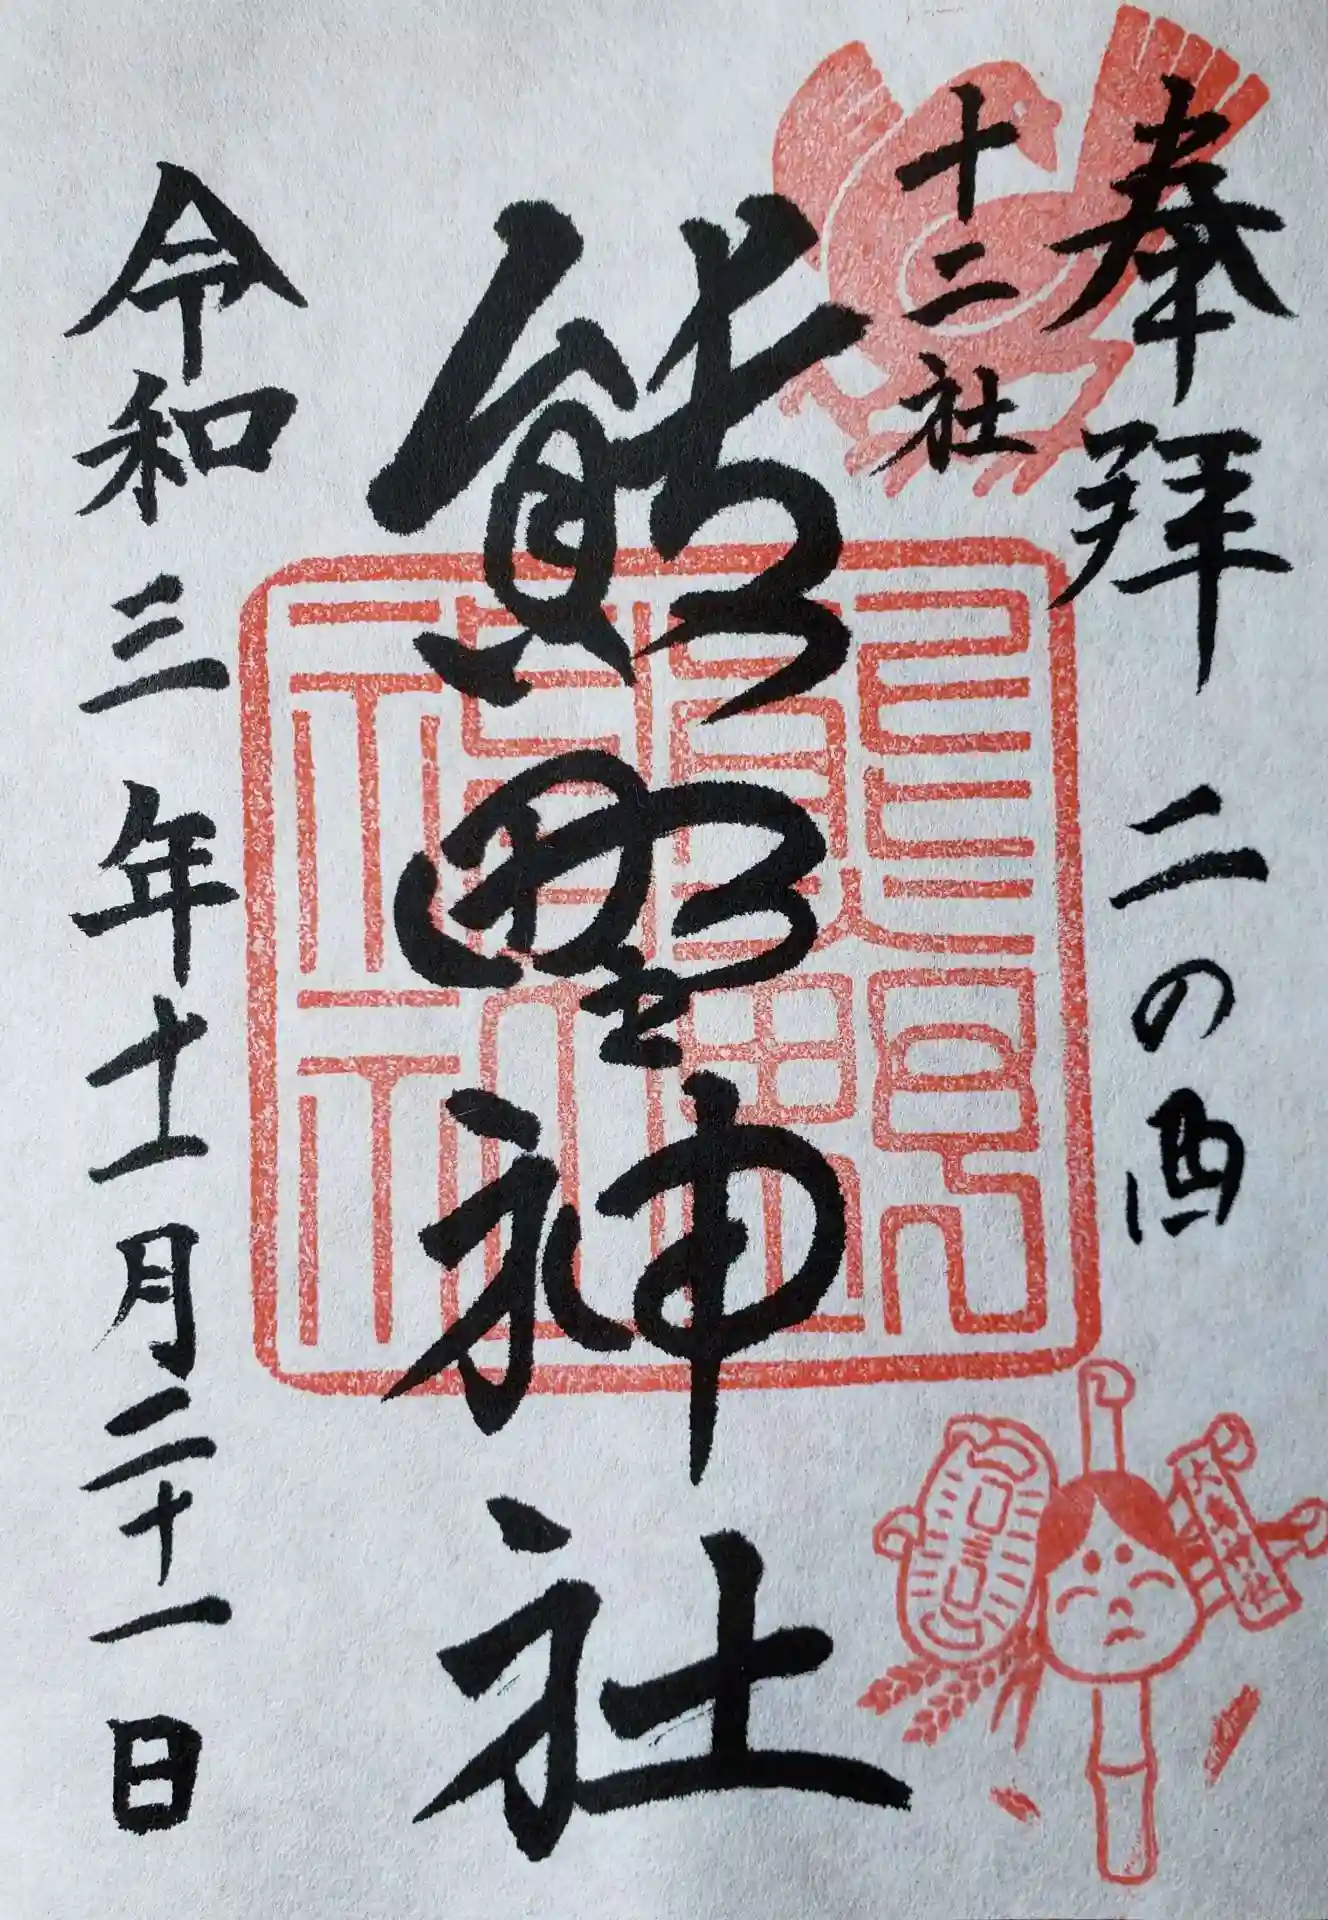 奉拝 二の酉
十二社
熊野神社
令和三年十一月二十一日